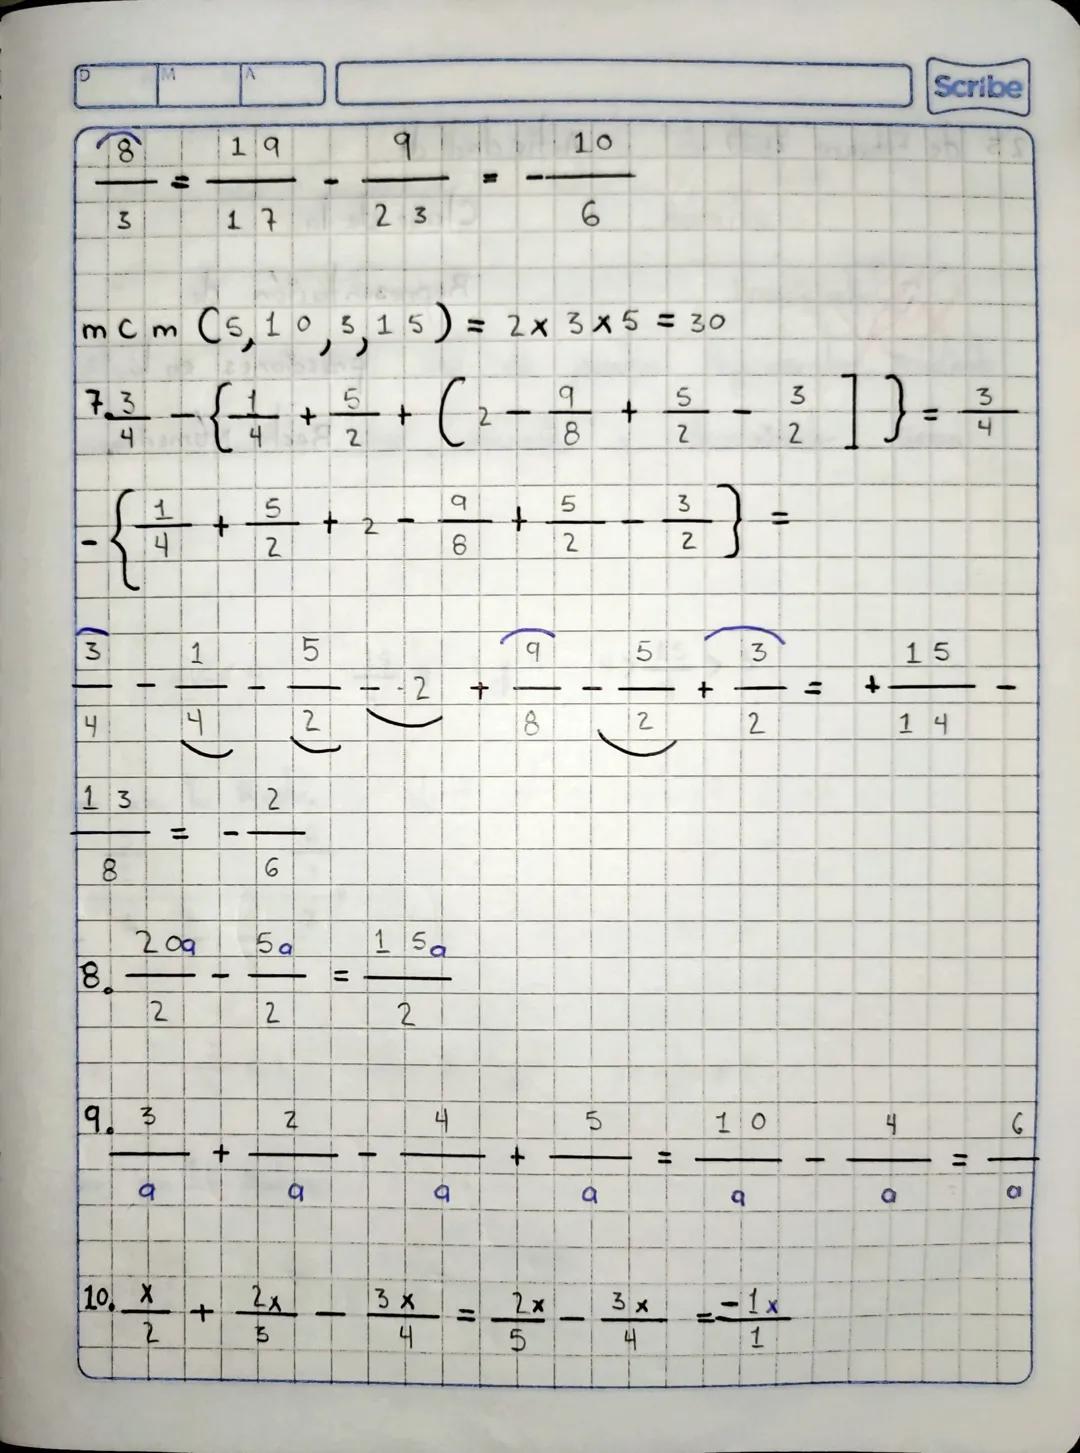 D M A Scribe
8/3 = 19/17 - 9/23 = -10/6
mcm (5,10,3,15) = 2x3x5 = 30
7. 3/4 - {1/4 + 5/2 + (2 - 9/8 + 5/2 - 3/2]} = 3/4
- {1/4 + 5/2 + 2 - 9/8 + 5/2 - 3/2} =
3/4 - 1/4 - 5/2 - -2 + 9/8 - 5/2 + 3/2 = + 15/14 -
13/8 = - 2/6
8. 20a/2 - 5a/2 = 15a/2
9. 3/a + 2/a - 4/a + 5/a = 10/a - 4/a = 6/a
10. x/2 + 2x/3 - 3x/4 = 2x/5 - 3x/4 = -1x/1